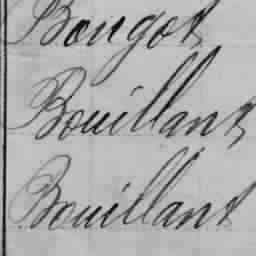 Bougot
Bouillant
Bouillant